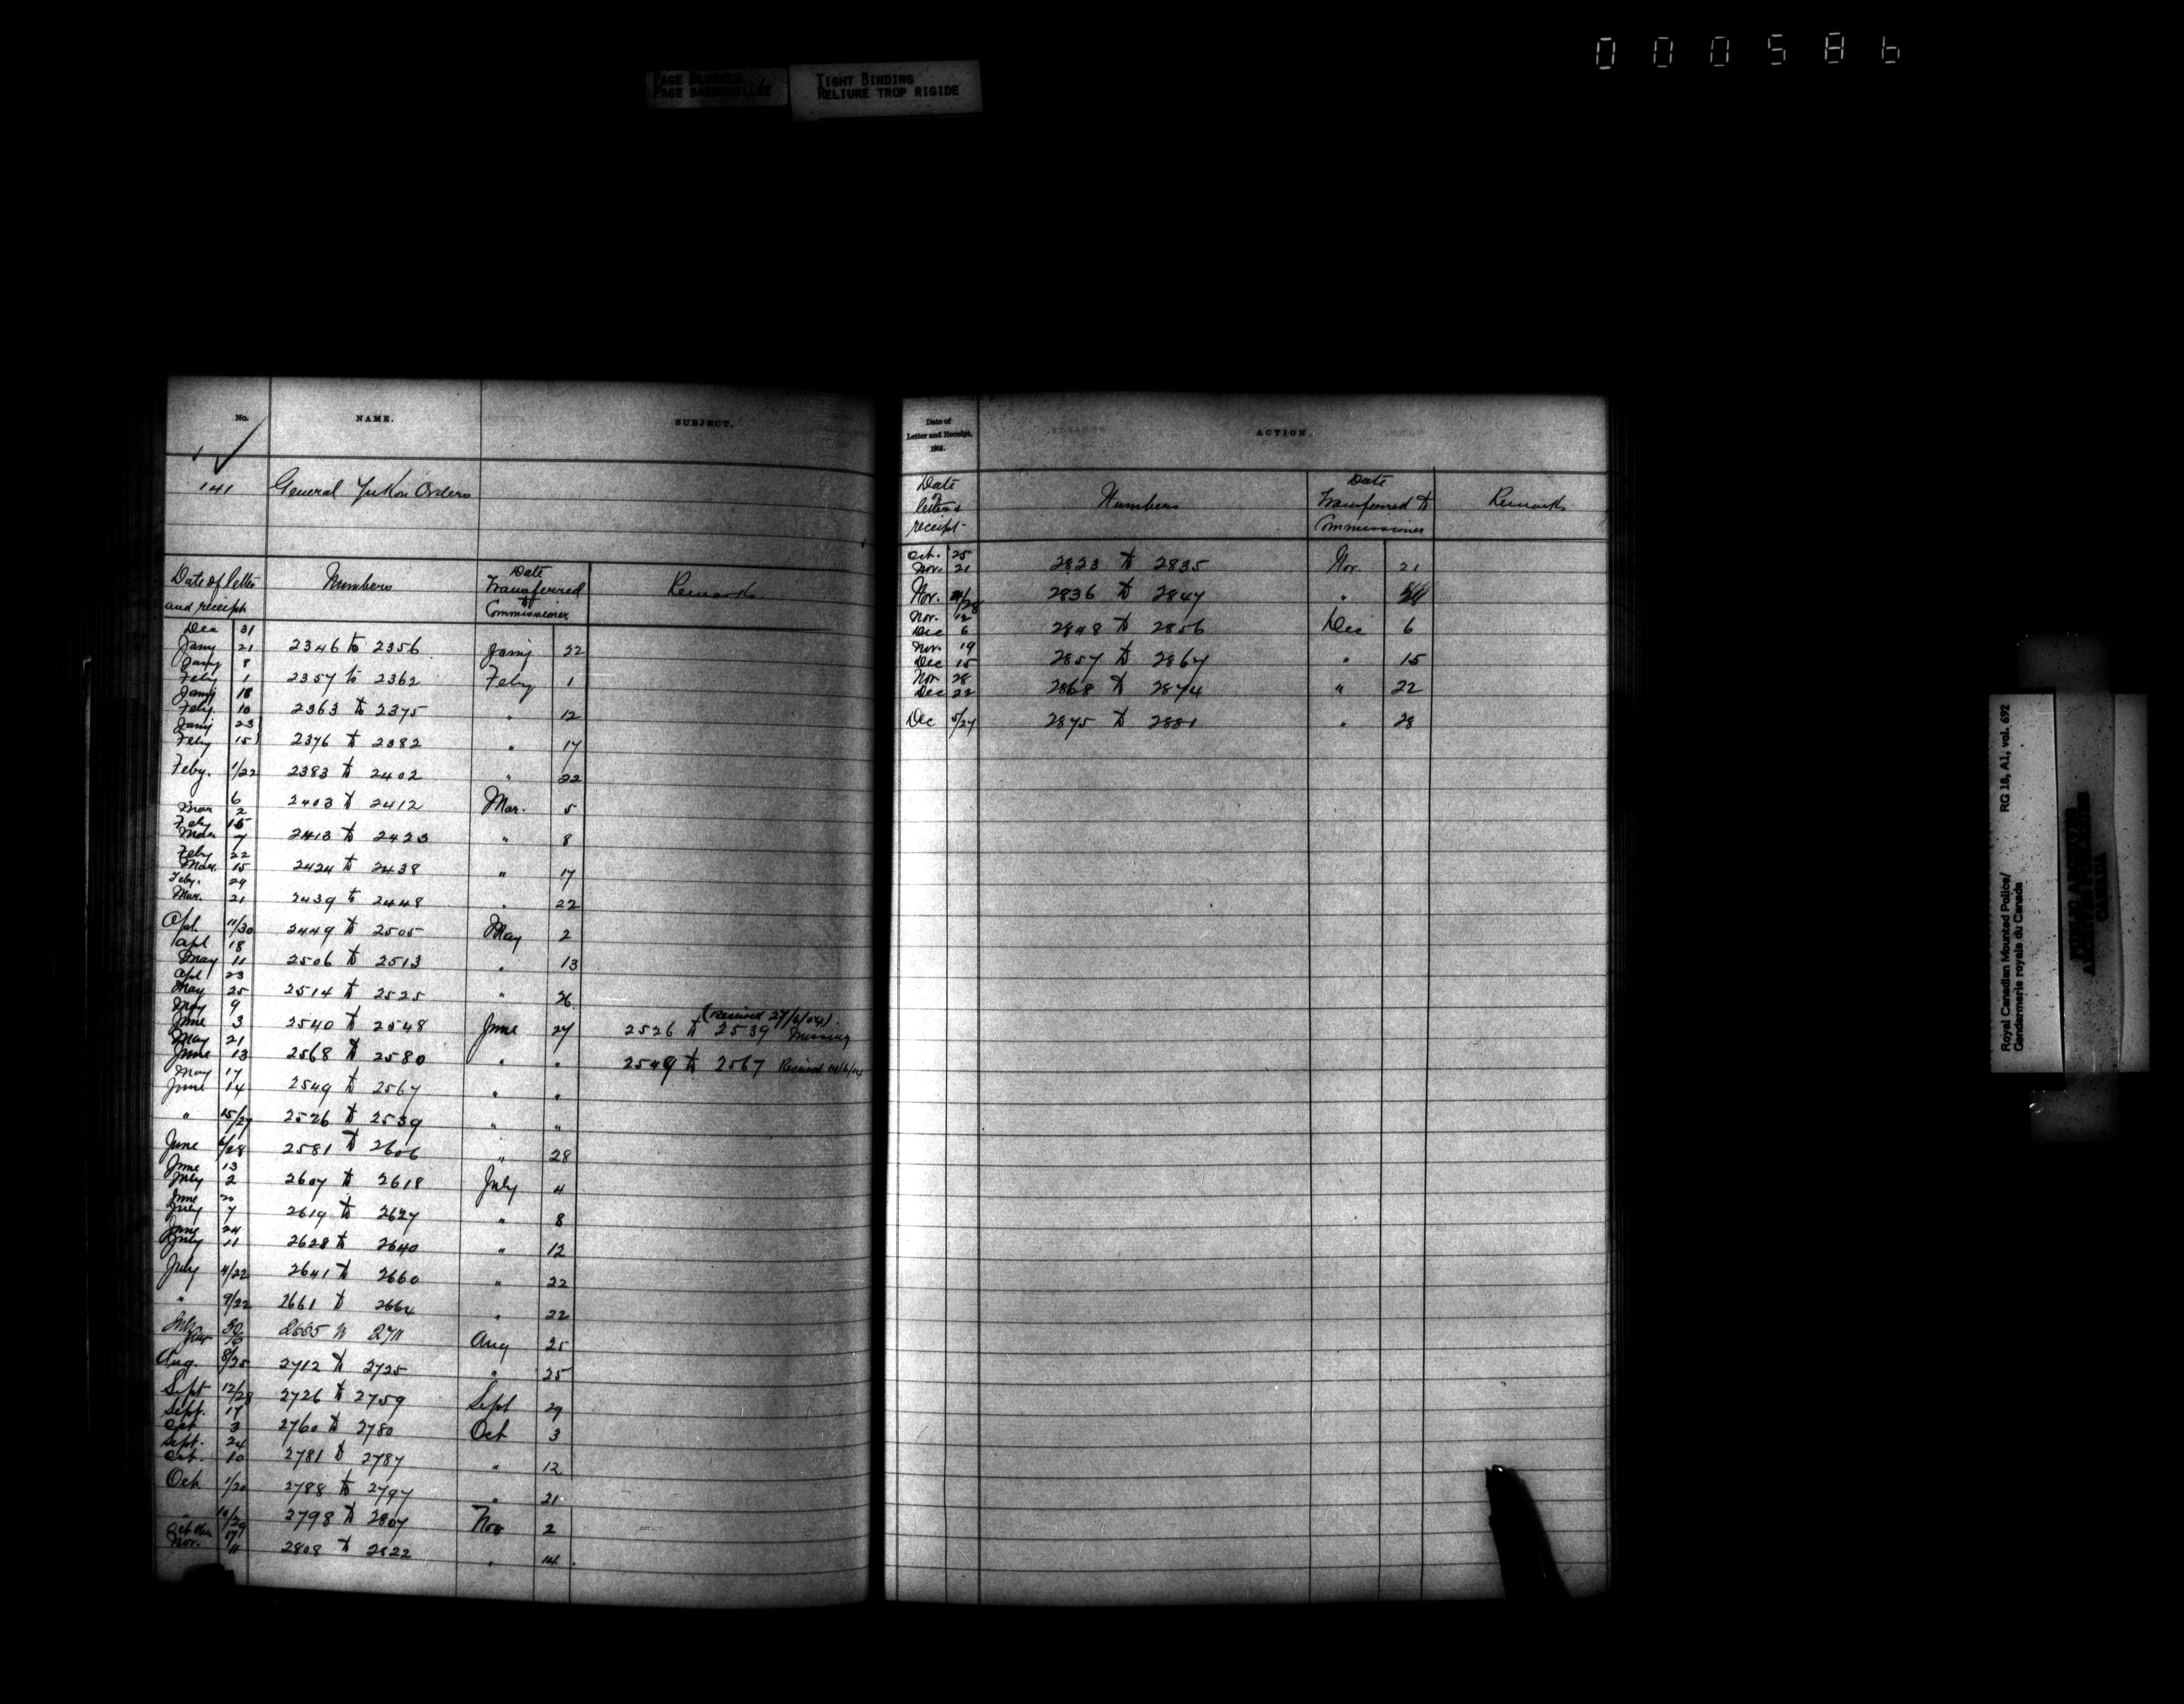 000586
PAGE BLURRED
PAGE BARBOUILLEE
TIGHT BINDING
RELIURE TROP RIGIDE
No. NAME. SUBJECT.
141 General Yukon Orders
Date of letter and receipt Numbers Date Transferred to Commissioner Remarks
Dec 31 Jany 21 2346 to 2356 Jany 22
Jany 8 Feby 1 2357 to 2362 Feby 1
Jany 18 Feby 10 2363 to 2375 " 12
Jany 23 Feby 15 2376 to 2382 " 17
Feby. 1/22 2383 to 2402 " 22
6 Mar 2 2403 to 2412 Mar. 5
Feby 15 Mar 7 2413 to 2423 " 8
Feby 22 Mar. 15 2424 to 2438 " 17
Feby. 24 Mar. 21 2439 to 2448 " 22
Apl. 11/30 2449 to 2505 May 2
Apl 18 May 11 2506 to 2513 " 13
Apl 23 May 25 2514 to 2525 " 26
May 9 June 3 2540 to 2548 June 27 2526 to 2539 Missing (Received 27/6/04).
May 21 June 13 2568 to 2580 " " 2549 to 2567 Received
May 17 June 14 2549 to 2567 " "
" 15/27 2526 to 2539 " "
June 6/28 2581 to 2606 " 28
June 13 July 2 2607 to 2618 July 4
June 20 July 7 2619 to 2627 " 8
June 24 July 11 2628 to 2640 " 12
July 4/22 2641 to 2660 " 22
" 9/22 2661 to 2664 " 22
July 30 2665 to 2711 Aug 25
Aug. 8/25 2712 to 2725 " 25
Sept 12/28 2726 to 2759 Sept 29
Sept. 17 Oct 3 2760 to 2780 Oct 3
Sept. 24 Oct. 10 2781 to 2787 " 12
Oct 1/20 2788 to 2797 " 21
" 10/29 2798 to 2807 Nov 2
17 Nov. 11 2808 to 2822 " 14.
Date of Letter and Receipt, 1904. ACTION.
Date of letter & receipt Numbers Date Transferred to Commissioner Remarks
Oct. 25 Nov. 21 2823 to 2835 Nov. 21
Nov. /28 2836 to 2847 "
Nov. 12 Dec 6 2848 to 2856 Dec 6
Nov. 19 Dec 15 2857 to 2867 " 15
Nov 28 Dec 22 2868 to 2874 " 22
Dec 5/27 2875 to 2881 " 28
Royal Canadian Mounted Police/ RG 18, A1, vol. 692
Gendarmerie royale du Canada
PUBLIC ARCHIVES
ARCHIVES PUBLIQUES
CANADA